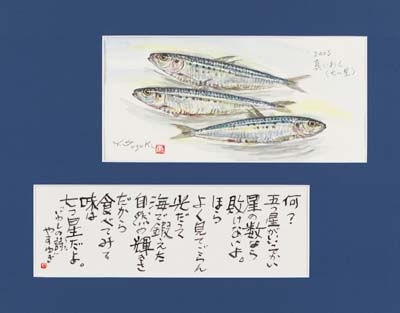 真いわし
(七つ星)
何？
五つ星が
星の数なら
敗けないよ。
ほら
よく見てごらん
海で鍛えた
自然の輝き
だから
食べてみろ
味は
七つ星だよ。
「いわしの詩」
やすゆき